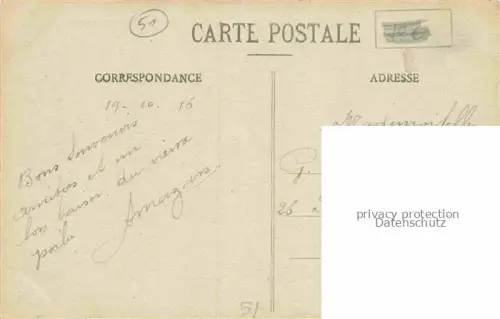 51
CARTE POSTALE
CORRESPONDANCE
ADRESSE
19-10.16
Bons Souvenirs
amitiés et un
bon baiser du vieux
poilu
Mademoiselle
26
privacy protection
Datenschutz
51